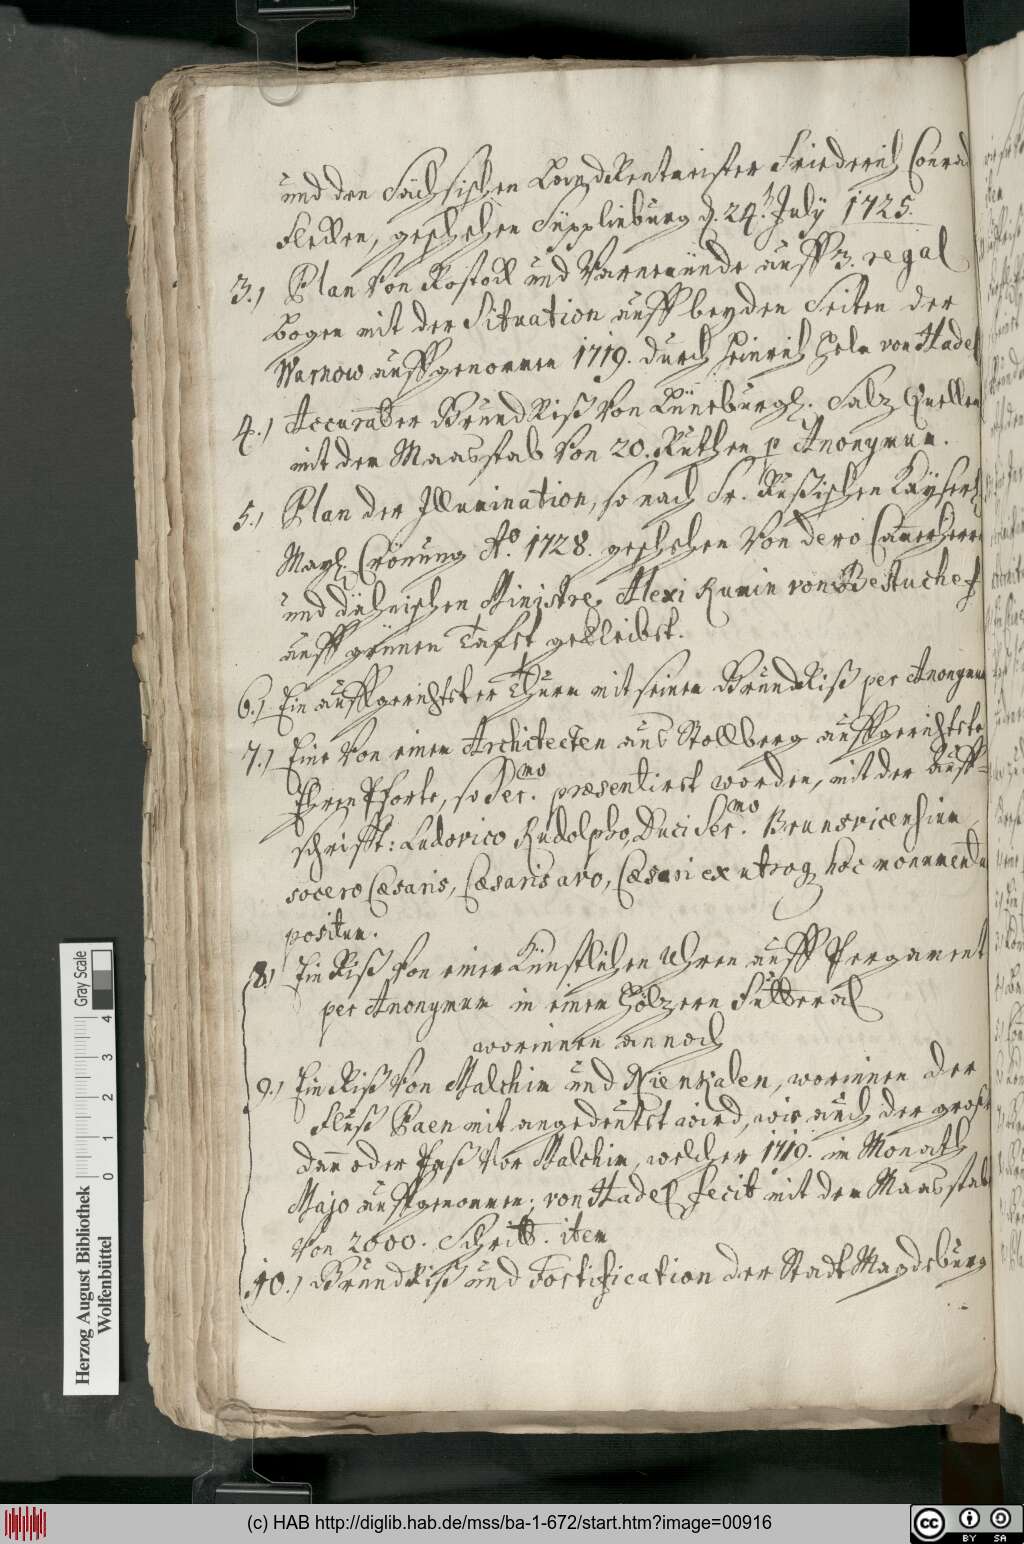 und den Sächsischen LandRentmeister Friederich Conrad
Flecken, geschehen Süpplinburg d. 24.t July 1725.
3.) Plan von Rostock und Varnemünde auff 3. regal
bogen mit der Situation auff beyden Seiten der
Warnow auffgenommen 1719. durch Heinrich Helm von Hadel
4.) Accurater GrundRiß von Lüneburgl. Saltz Quellen
mit dem Maasstab von 20. Ruthen p Anonymum.
5.) Plan der Illumination, so nach Sr. Rußischen Kayserl.
Mayl. Crönung Ao. 1728. geschehen von dero Cammerherrn
und dähnischen Ministre, Alexi Rumin von Bestuchef
auff grünen Tafft gekleibet.
6.) Ein auffgerichteter Thurm mit seinem GrundRiß per Anonymum
7.) Eine von einem Architecten aus Stollberg auffgerichtete
EhrenPforte, so Ser.mo præsentiret worden, mit der Auff-
schrifft: Ludovico Rudolpho, Duci Ser.mo Brunsvicensium
socero Cæsaris, Cæsaris avo, Cæsari ex utroq hoc monumentu
positum.
8.) Ein Riß von einer Künstlichen Uhren auff Pergament
per Anonymum in einem Höltzern Futteral
worinnen annoch
9.) Ein Riß von Malchim und Nienkalen, worinnen der
Fluß Paen mit angedeutet wird, wie auch der große
Damm oder Paß vor Malchim, welcher 1719. im Monath
Majo auffgenommen; von Hadel fecit mit dem Maasstab
von 2000. Schritt. item
10.) GrundRiß und Fortification der Stadt Magdeburg
Gray Scale
4
3
2
1
0
Herzog August Bibliothek
Wolfenbüttel
(c) HAB http://diglib.hab.de/mss/ba-1-672/start.htm?image=00916
cc BY SA